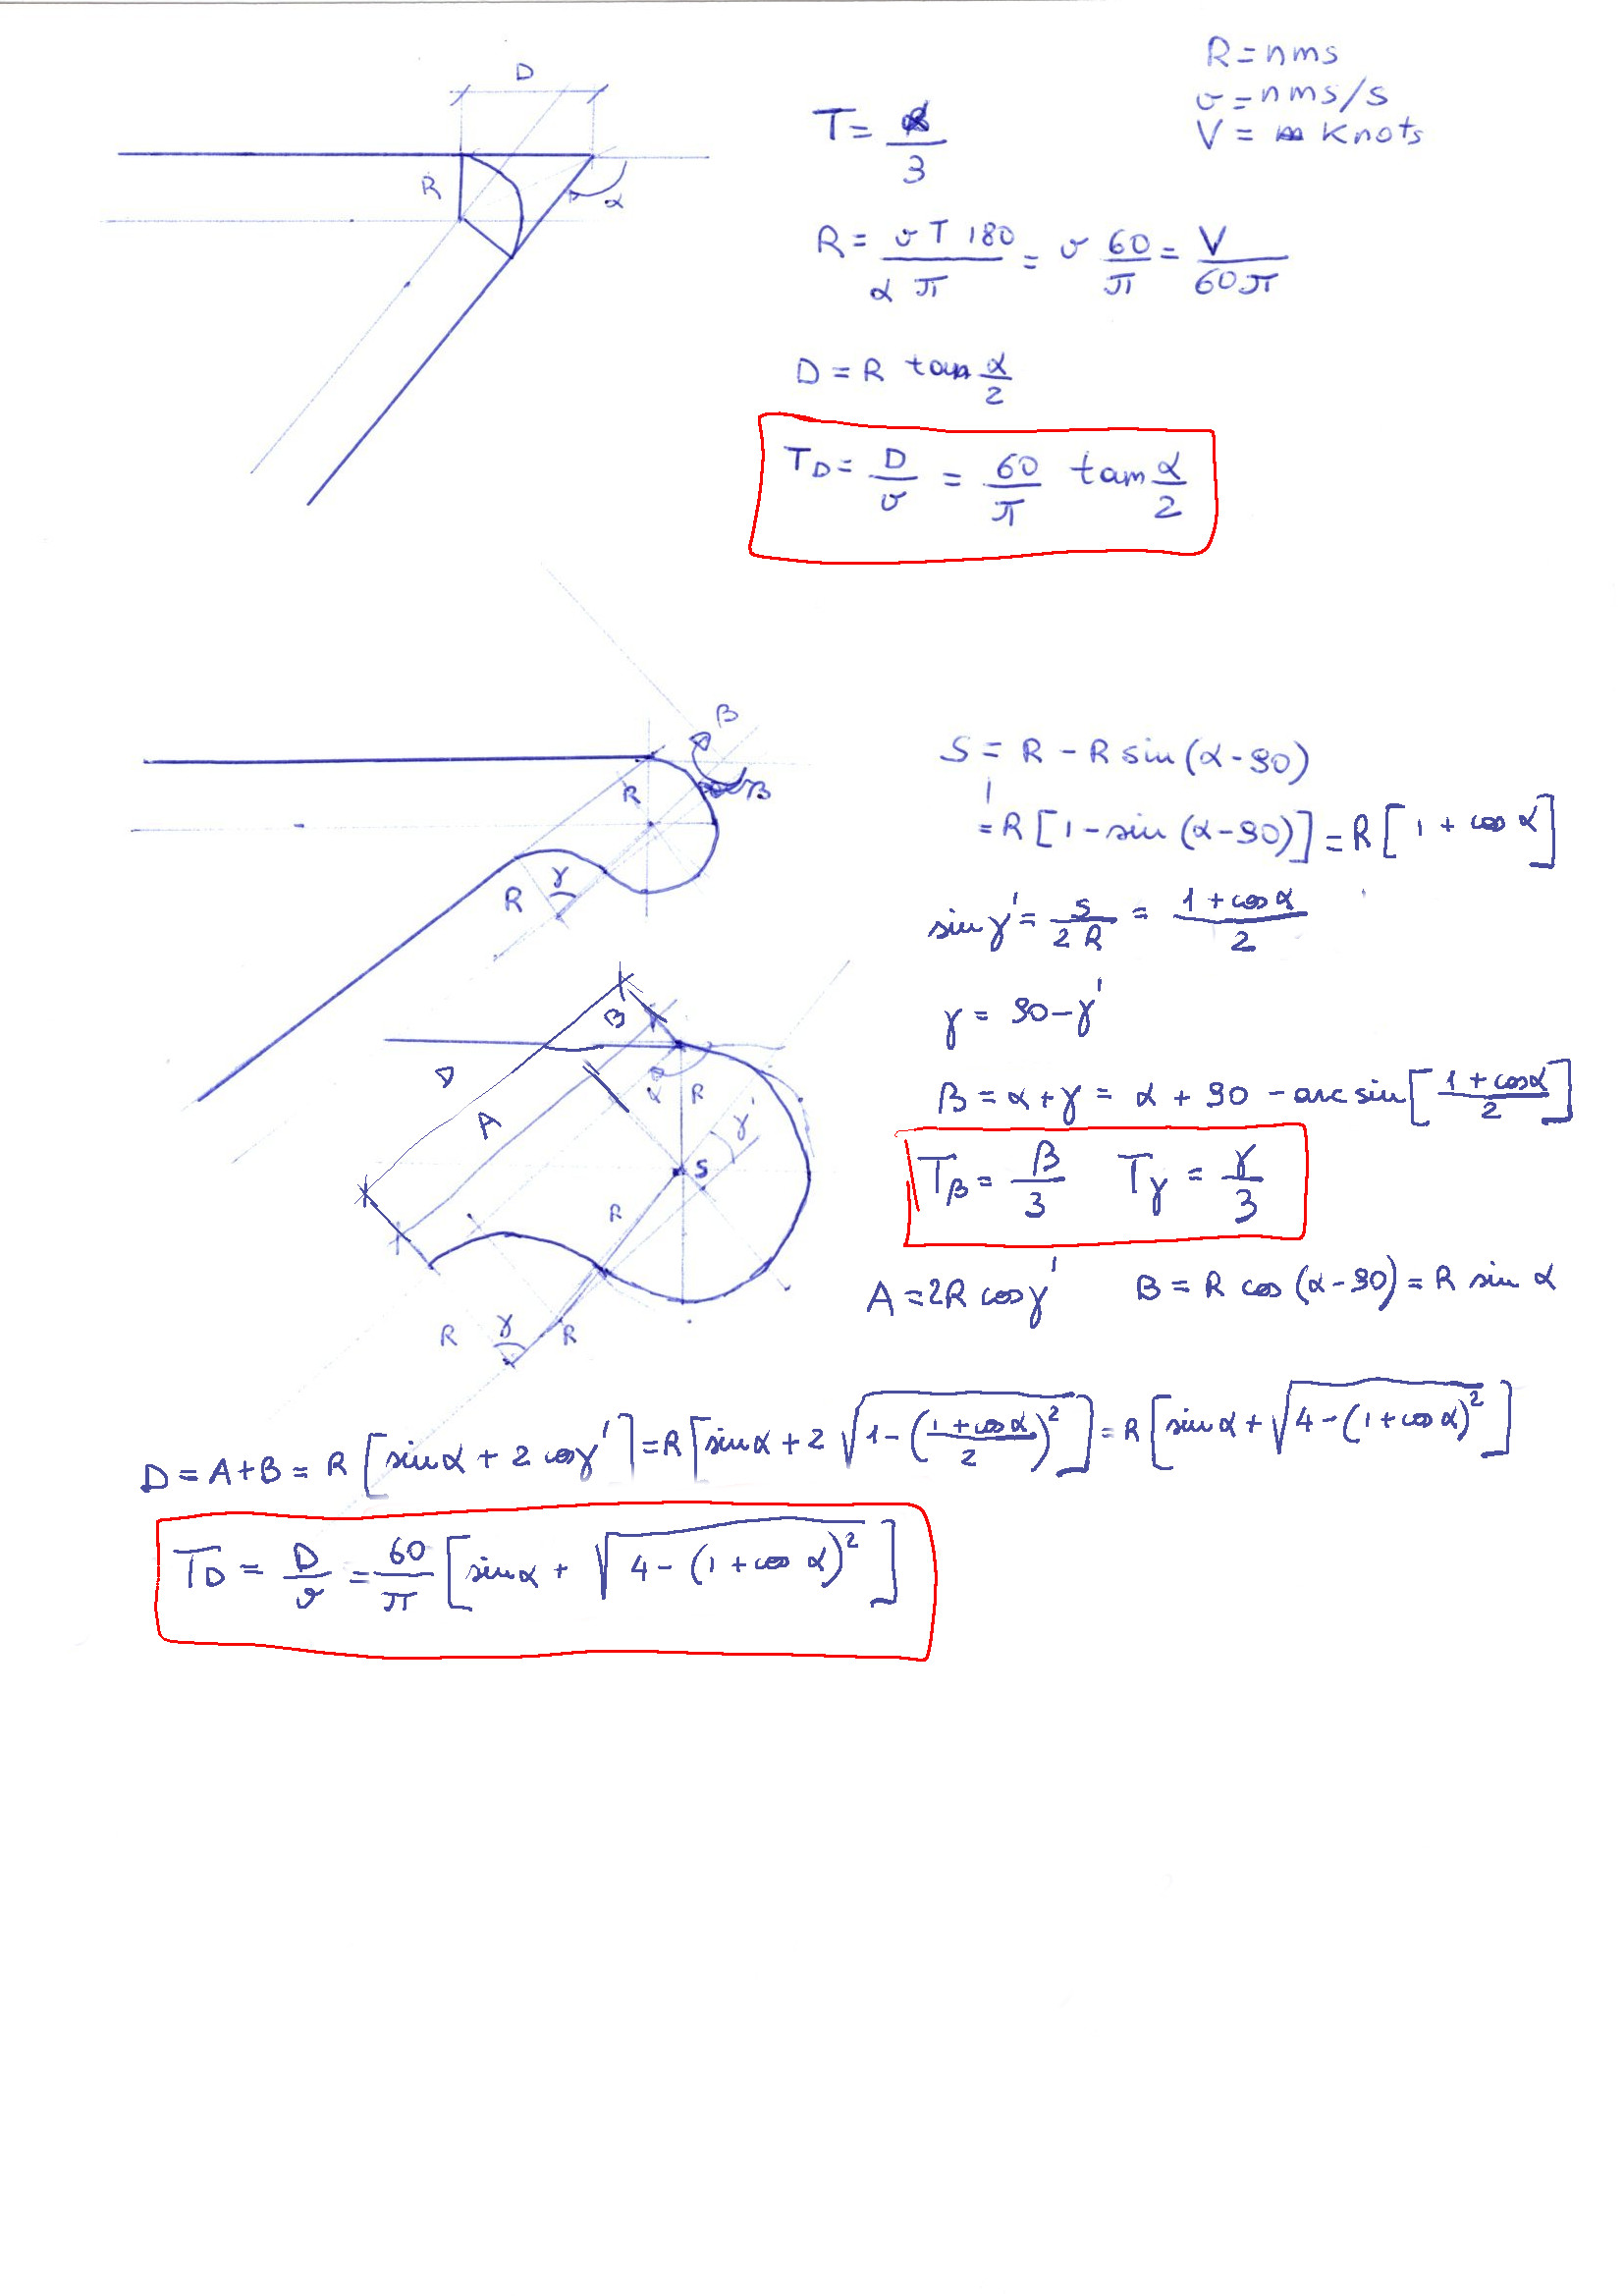 R = nms
v = nms/s
V = knots
D
R
α
T = α/3
R = v T 180 / α π = v 60/π = V/60π
D = R tan α/2
T_D = D/v = 60/π tan α/2
β
β
R
R
γ
S = R - R sin (α-90)
= R [1 - sin (α-90)] = R [1 + cos α]
sin γ' = s/2R = (1 + cos α)/2
γ = 90 - γ'
β = α + γ = α + 90 - arc sin [(1 + cos α)/2]
T_β = β/3 T_γ = γ/3
B
D
A
α
R
γ'
S
R
R
γ
R
A = 2R cos γ' B = R cos (α-90) = R sin α
D = A + B = R [sin α + 2 cos γ'] = R [sin α + 2 √(1 - ((1 + cos α)/2)²)] = R [sin α + √(4 - (1 + cos α)²)]
T_D = D/v = 60/π [sin α + √(4 - (1 + cos α)²)]